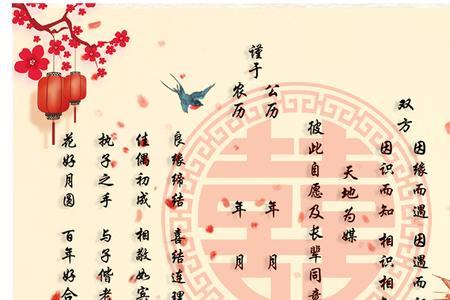 双方
因缘而遇 因遇而
因识而知 相识相
天地为媒
彼此自愿及长辈同意
谨于
公历 年 月
农历 年 月
良缘缔结 喜结连理
佳偶初成 相敬如宾
执子之手 与子偕老
花好月圆 百年好合
囍